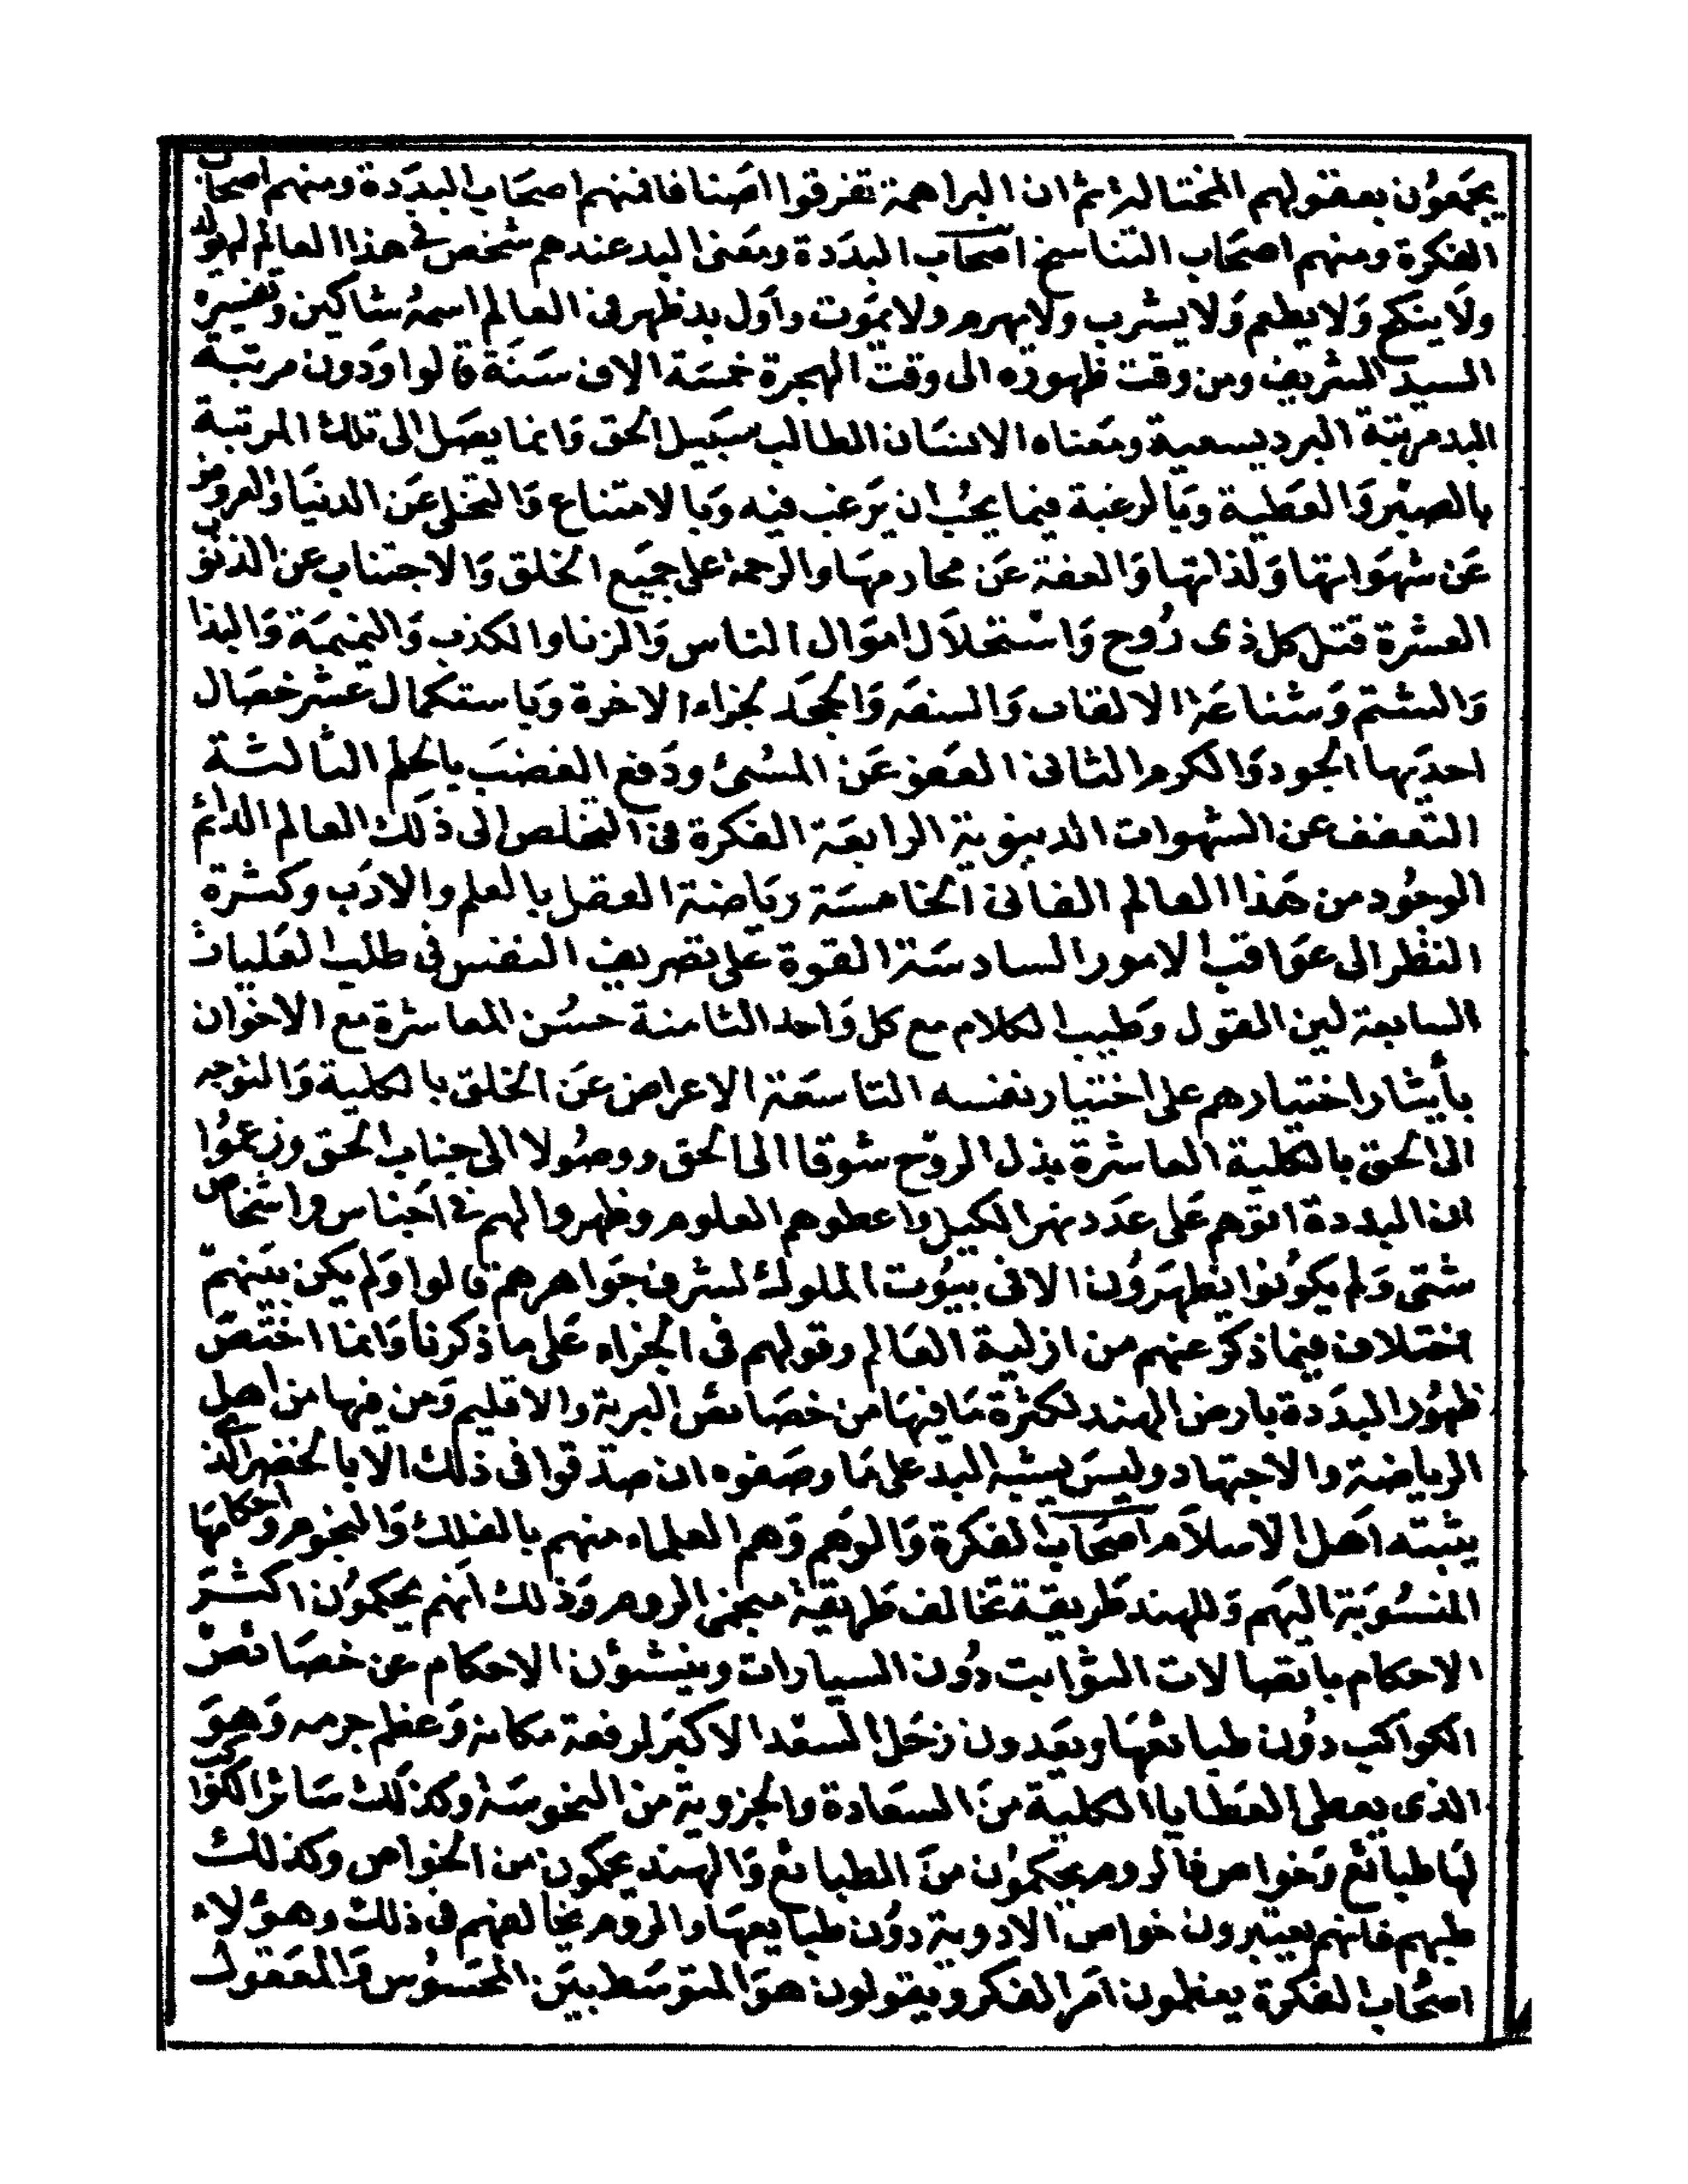 يجمَعوُن بعقولهم المختالة ثم ان البراهمة تفرقوا اصَنافا فمنهم اصحَاب البدَدة ومنهم اصحاب
الفكرة ومنهم اصحَاب التناسخ اصحَاب البدَدة ومعَنى البد عندهم شخص في هذا العالم لم يولد
ولَا ينكح وَلا يطعم وَلا يشرب ولا يهرم ولا يموَت واول بد ظهر فى العالم اسمهُ شاكين وتفسيره
السيد الشريف ومن وقت ظهوره الى وقت الهجرة خمسَة الاف سَنَة قالوا وَدون مرتبة
البد مرتبة البرديسعية ومعَناه الانسَان الطالب سبَيل الحق وَانما يصَل الى تلك المرتبة
بالصبْر وَالعطية وبَالرغبة فيما يجبُ ان يَرغب فيه وَبالامتناع وَالتخلى عَن الدنيَا والعزوف
عَن شهوَاتها وَلذاتها وَالعفة عَن محارمهَا والرحمة على جمَيع الخلق وَالاجتناب عن الذنوب
العشرة قتل كل ذى رُوح وَاستْحلاَل اموَال الناس وَالزنا والكذب وَالنميمَة وَالبذا
وَالشتم وَشناعَة الالقاب وَالسفَه وَالجحَد لجزاء الاخرة وَباستكمال عشر خصَال
احديهَا الجود وَالكرم الثانى العفو عَن المسُئ ودَفع الغضبَ بالحلم الثالثة
التعفف عن الشهوات الدنيوية الرابعَة الفكرة فى التخلص الى ذلَك العالم الدائم
الوجُود من هَذا العالم الفانى الخامسَة ريَاضة العقل بالعلم والادَب وكثرة
النظر الى عوَاقب الامور السادسَة القوة عَلى تصريف النفس فى طلب العَليات
السابعة لين القول وَطيب الكلام مع كل وَاحد الثامنة حسُن المعاشرة مع الاخوَان
بأيثار اختيارهم على اختيار نفسه التاسعَة الاعراض عَن الخلق بالكلية وَالتوجه
الى الحق بالكلية العاشرة بذل الروّح شوقا الى الحق ووصُولا الى جناب الحق وزعموُا
ان البددة اتوهم عَلى عدَد نهر الكيل واعطوهم العلوم وظهروا لهم في اجَناس واشخاص
شتى وَلم يكوُنوا يَظهَروُن الا فى بيوُت الملوك لشرف جوَاهرهم قالوا وَلم يكن بيَنهم
اختلاف فيما ذكرَ عنهم من ازلية العَالم وقولهم فى الجزاء عَلى ما ذكرنا وَانما اختصَ
ظهوُر البدَدة بارض الهند لكثرة مَا فيهَا من خصَائص البرية والاقليم وَمن فيها من اهل
الرياضة والاجتهاد وليسَ يشبه البد على مَا وصَفوه ان صدَقوا فى ذلك الا بالخضر الذى
يثبته اهَل الاسلاَم اصحَاب الفكرة وَالوَهم وَهم العلماء منهم بالفلك وَالنجوم وَاحكامهَا
المنسُوبَة اليهَم وَللهند طَريقة تخالف طَريقة منجمى الروم وَذلك انَهم يحكموُن اكثَر
الاحكام باتصالات الثوَابت دوُن السيارات وينشؤن الاحكام عن خصَائص
الكواكب دوُن طبائعهَا ويَعدون زحَل السعَد الاكبَر لرفعة مكانه وَعظم جرمه وَهوَ
الذى يعطى العَطايا الكلية منَ السعَادة والجزوية من النحوسَة وكذلَك سَائر الكواكب
لهَا طبائع وَخواص فالروم يحكموُن منَ الطبائع وَالهند يحكمون من الخواص وكذلك
طبهم فانهم يعتبرون خواص الادوية دوُن طبايعهَا والروم يخالفهم فى ذلك وهؤلاء
اصحَاب الفكرة يعظمون امَر الفكر ويقولون هوَ المتوسَط بيَن المحسَوُس وَالمعَقول